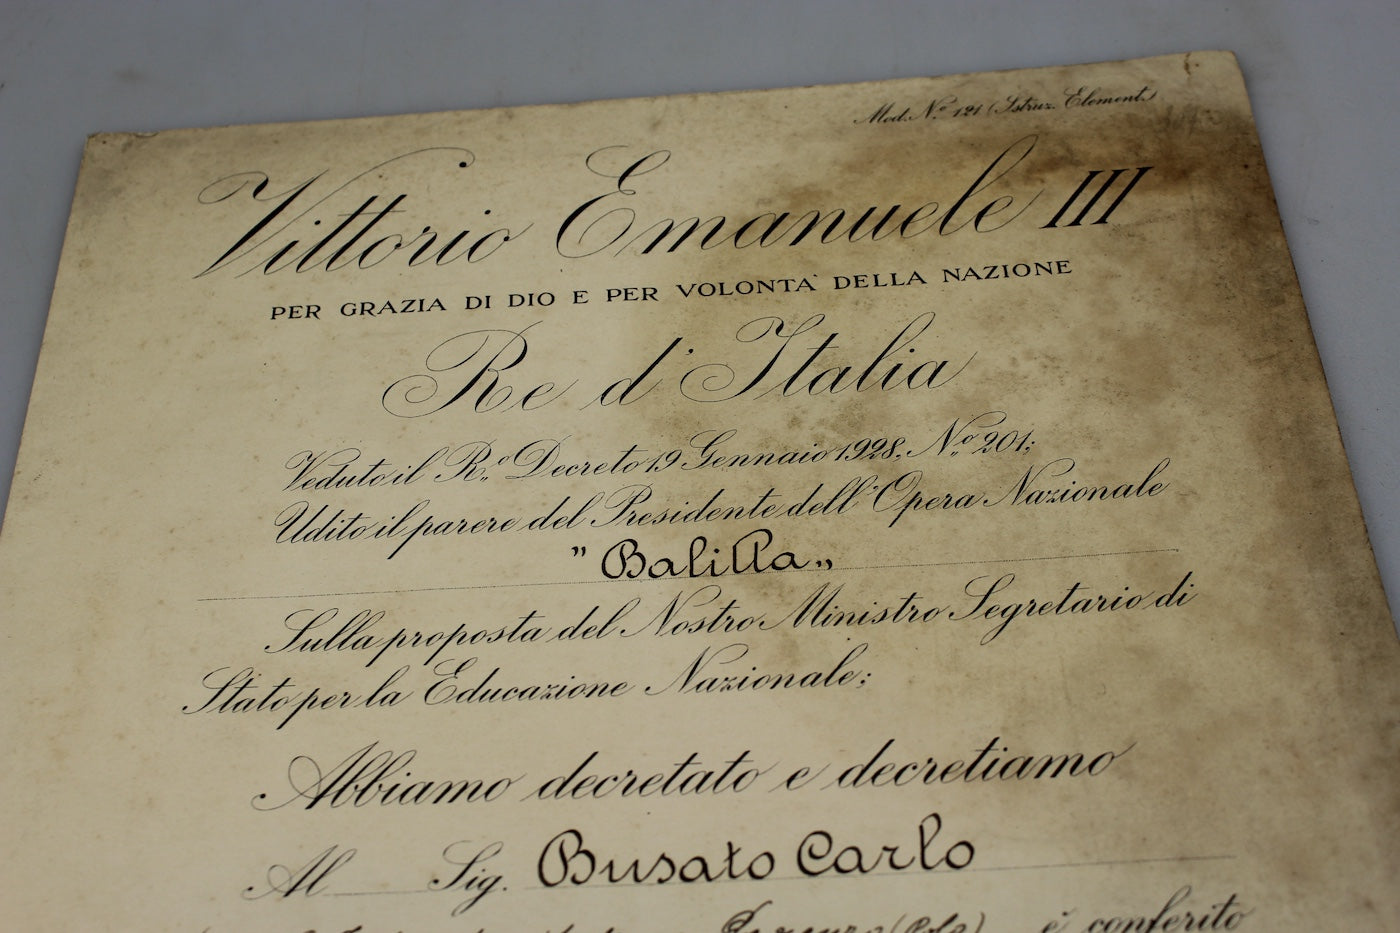 Mod. N.º 121 (Istruz. Element.)
Vittorio Emanuele III
PER GRAZIA DI DIO E PER VOLONTA` DELLA NAZIONE
Re d'Italia
Veduto il R.º Decreto 19 Gennaio 1928, N.º 201;
Udito il parere del Presidente dell'Opera Nazionale
"Balilla„
Sulla proposta del Nostro Ministro Segretario di
Stato per la Educazione Nazionale;
Abbiamo decretato e decretiamo
Al Sig. Busato Carlo
è conferito